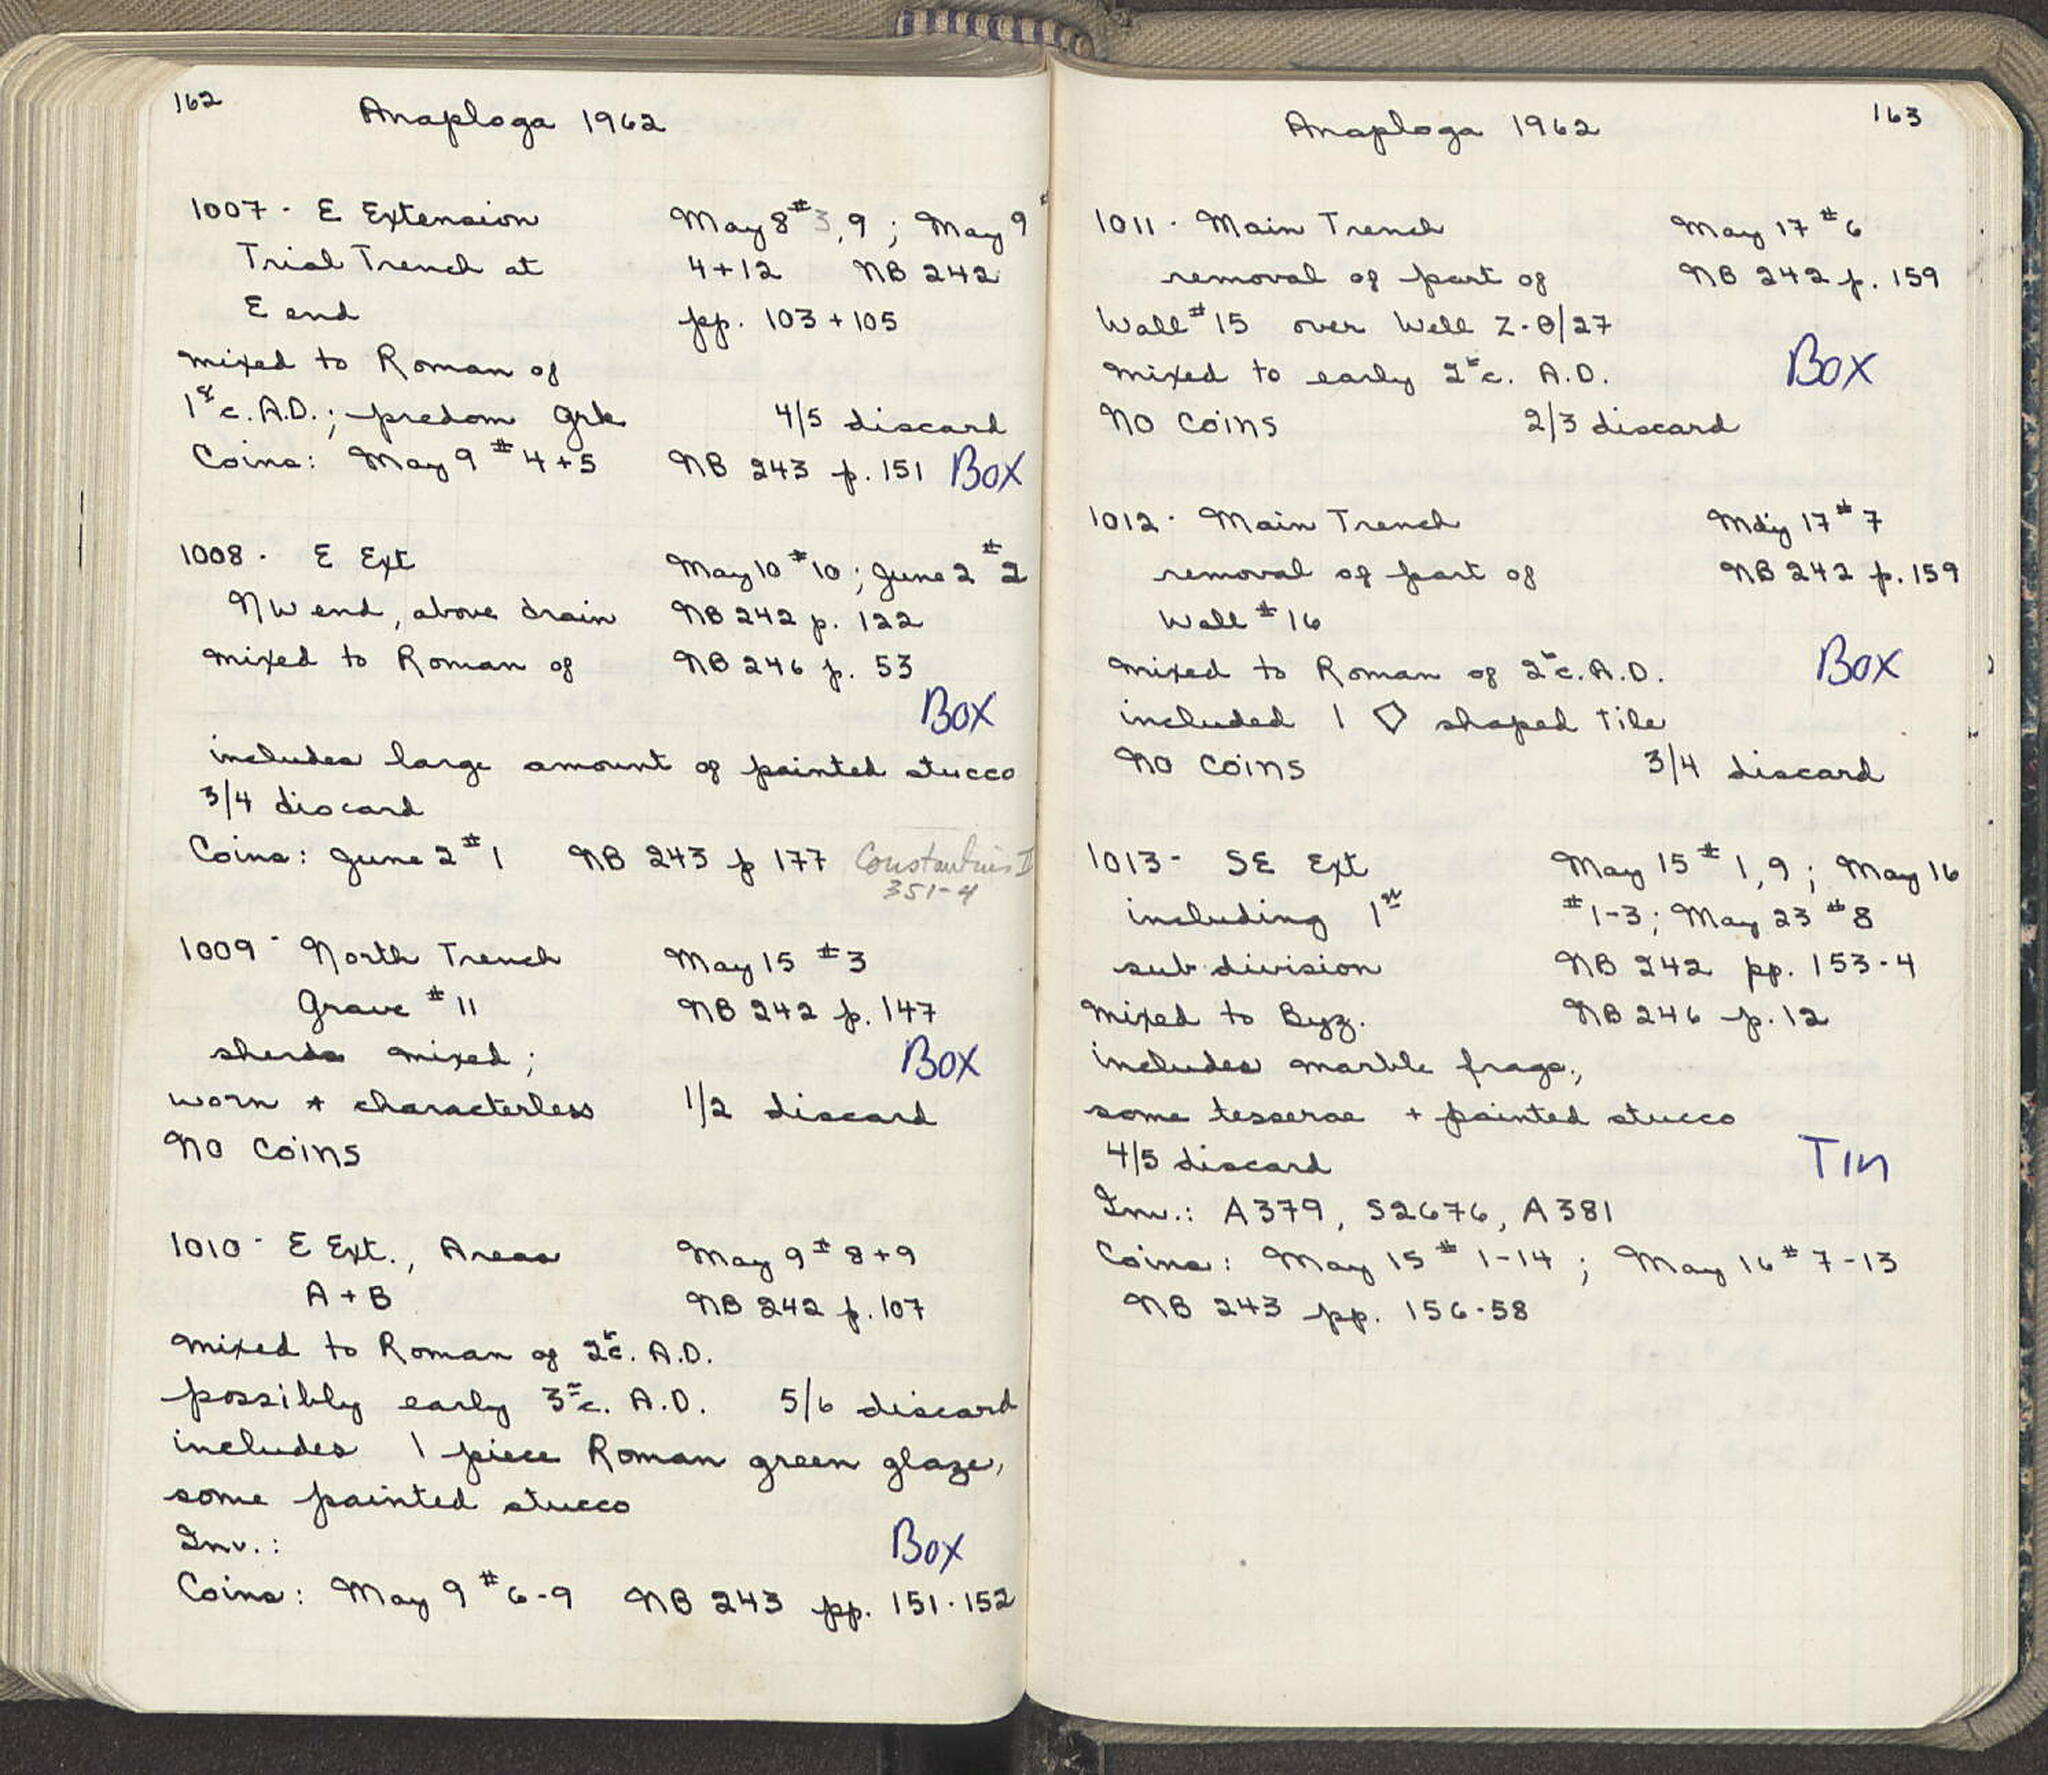 162
Anaploga 1962
1007 - E Extension May 8 #3, 9 ; May 9 #
Trial Trench at 4+12 NB 242
E end pp. 103 + 105
mixed to Roman of
1st c. A.D.; predom Grk 4/5 discard
Coins: May 9 #4+5 NB 243 p. 151 Box
1008 - E Ext May 10 #10 ; June 2 #2
NW end, above drain NB 242 p. 122
mixed to Roman of NB 246 p. 53
Box
includes large amount of painted stucco
3/4 discard
Coins: June 2 #1 NB 243 p 177 Constantius II
351-4
1009 - North Trench May 15 #3
Grave #11 NB 242 p. 147
sherds mixed; Box
worn + characterless 1/2 discard
No Coins
1010 - E Ext., Areas May 9 #8+9
A + B NB 242 p. 107
mixed to Roman of 2nd c. A.D.
possibly early 3rd c. A.D. 5/6 discard
includes 1 piece Roman green glaze,
some painted stucco
Inv.: Box
Coins: May 9 #6-9 NB 243 pp. 151-152
163
Anaploga 1962
1011 - Main Trench May 17 #6
removal of part of NB 242 p. 159
Wall #15 over Well Z-Θ/27
mixed to early 2nd c. A.D. Box
No Coins 2/3 discard
1012 - Main Trench May 17 #7
removal of part of NB 242 p. 159
Wall #16
mixed to Roman of 2nd c. A.D. Box
included 1 ◇ shaped tile
No Coins 3/4 discard
1013 - SE Ext May 15 #1, 9 ; May 16
including 1st #1-3; May 23 #8
sub-division NB 242 pp. 153-4
mixed to Byz. NB 246 p. 12
includes marble frags.,
some tesserae + painted stucco
4/5 discard Tin
Inv.: A379, S2676, A381
Coins: May 15 #1-14 ; May 16 #7-13
NB 243 pp. 156-58